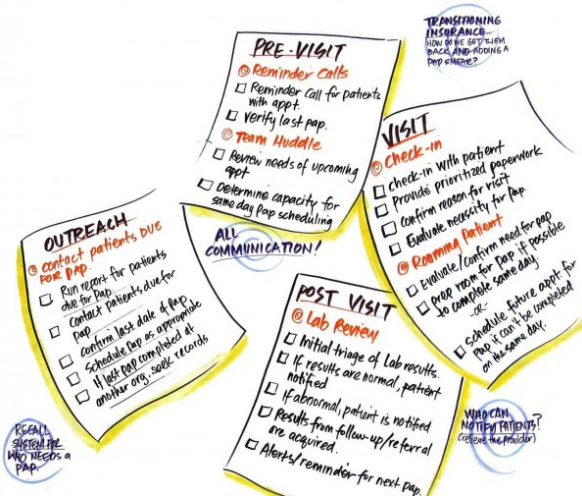 TRANSITIONING
INSURANCE...
HOW DO WE GET THEM
BACK AND ADDING A
PAP SMEAR?
PRE-VISIT
Reminder Calls
Reminder Call for patients
with appt.
Verify last pap.
Team Huddle
Review needs of upcoming
appt
Determine capacity for
same day Pap scheduling
VISIT
Check-in
Check-in with patient
Provide prioritized paperwork
Confirm reason for visit
Evaluate necessity for Pap.
Rooming Patient
Evaluate/confirm need for pap
Prep room for Pap if possible
to complete same day.
-OR-
Schedule future appt. for
Pap if can't be completed
on the same day.
OUTREACH
Contact patients due
FOR PAP.
Run report for patients
due for Pap.
Contact patients due for
Pap
Confirm last date of Pap
Schedule Pap as appropriate
If last pap completed at
another org. seek records
ALL
COMMUNICATION!
POST VISIT
Lab Review
Initial triage of Lab results.
If results are normal, patient
notified
If abnormal, patient is notified
Results from follow-up/referral
are acquired.
Alerts/reminder for next Pap.
RECALL
SYSTEM FOR
WHO NEEDS a
PAP.
WHO CAN
NOTIFY PATIENTS?
(relieve the provider)